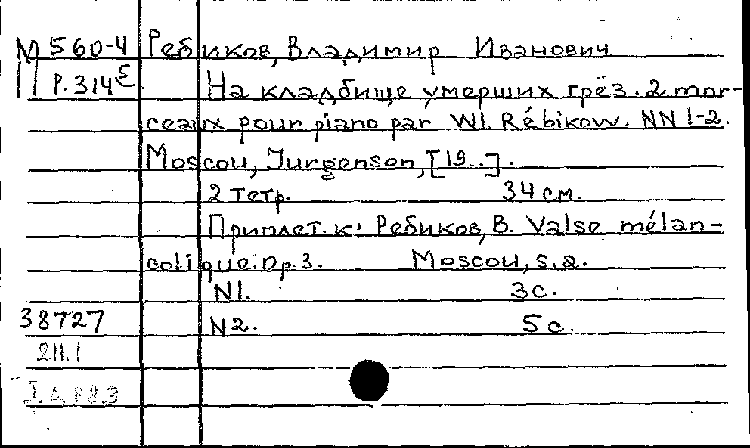 М 560-4 Ребиков, Владимир Иванович
Р.314 На кладбище умерших грёз. 2 mor-
ceaux pour piano par Wl. Rébikow. NN 1-2.
Moscou, Jurgenson, [19..].
2 тетр. 34 см.
Приплет. к: Ребиков, В. Valse mélan-
colique. Op. 3. Moscou, s.a.
N1. 3 с.
38727 N2. 5 с
211.1